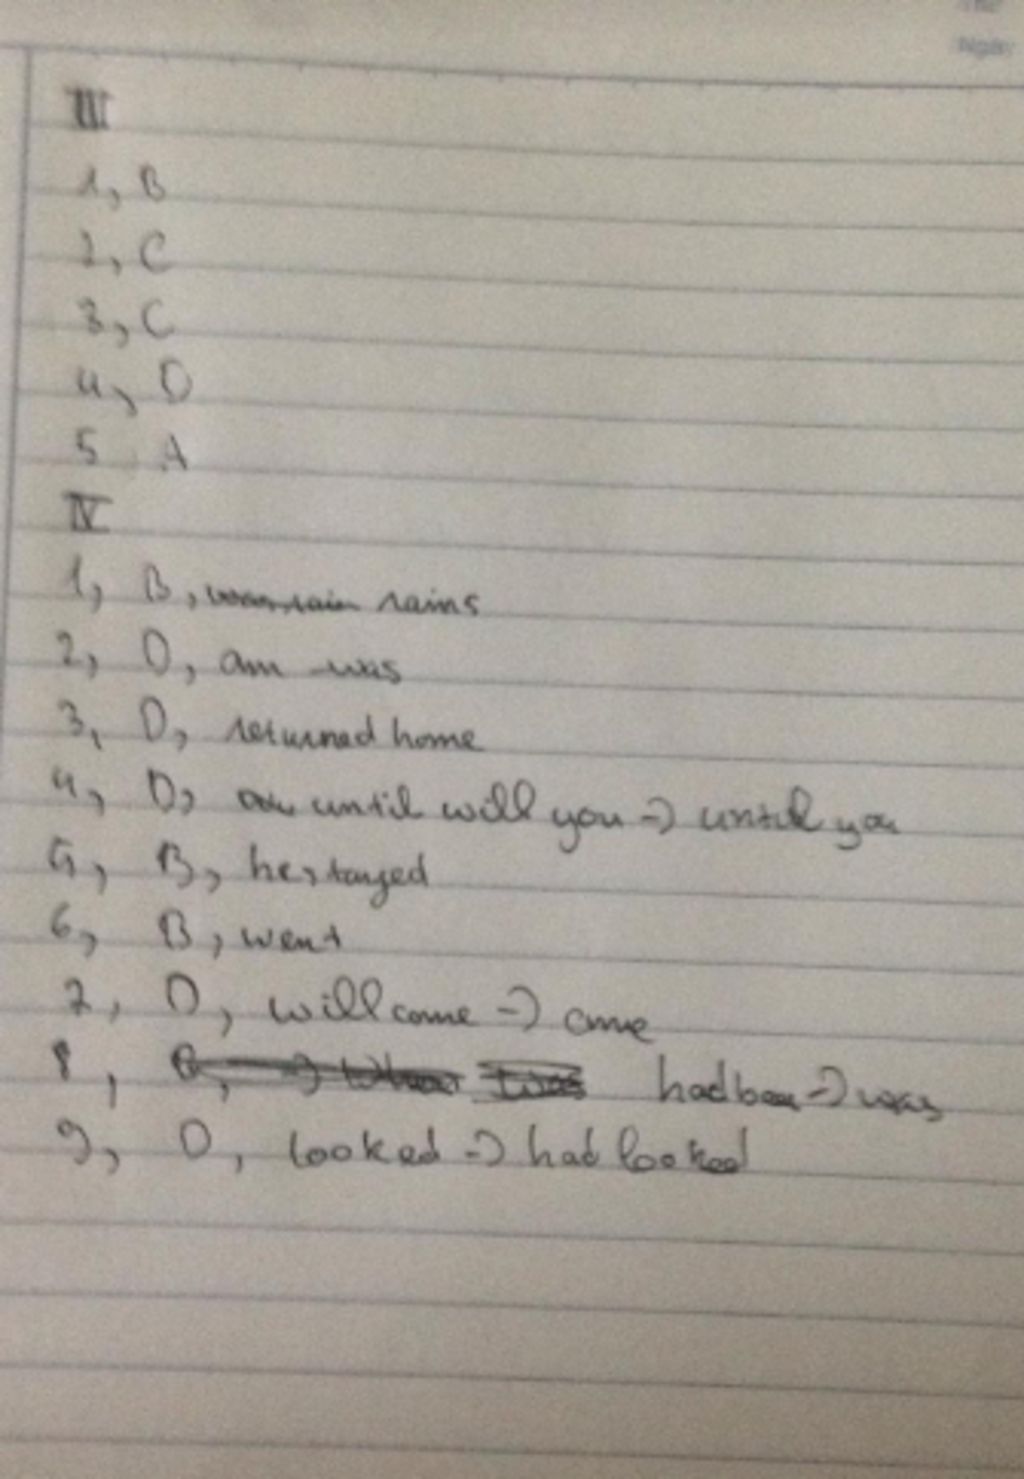 Ngày
III
1, B
2, C
3, C
4, D
5 A
IV
1, B, rains
2, D, am was
3, D, returned home
4, D, until will you → until you
5, B, he stayed
6, B, went
7, D, will come → came
8, had been → was
9, D, looked → had looked